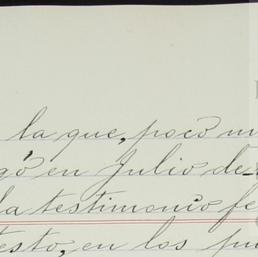 la que, poco m
gó en Julio de
la testimonio fe
esto, en los pu